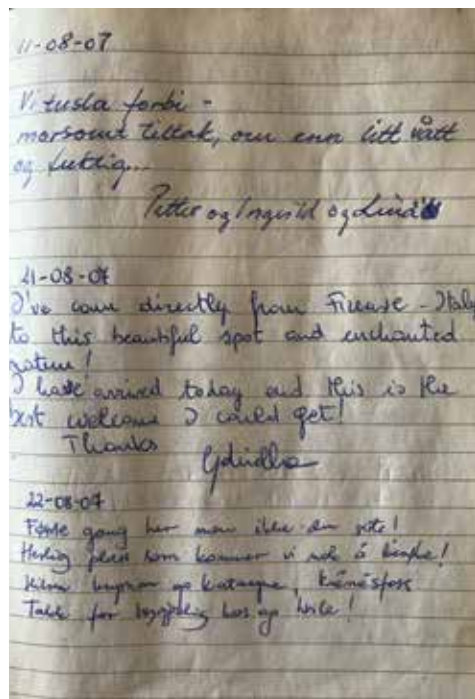 11-08-07
Vi tusla forbi -
morsomt tiltak, om enn litt vått
og fuktig...
Petter og Ingvild og
21-08-07
I've come directly from Firenze - Italy
to this beautiful spot and enchanted
nature!
I have arrived today and this is the
best welcome I could get!
Thanks
22-08-07
Første gang her men ikke den siste!
Herlig plass som kommer vi
Hilsen
Takk for hyggelig